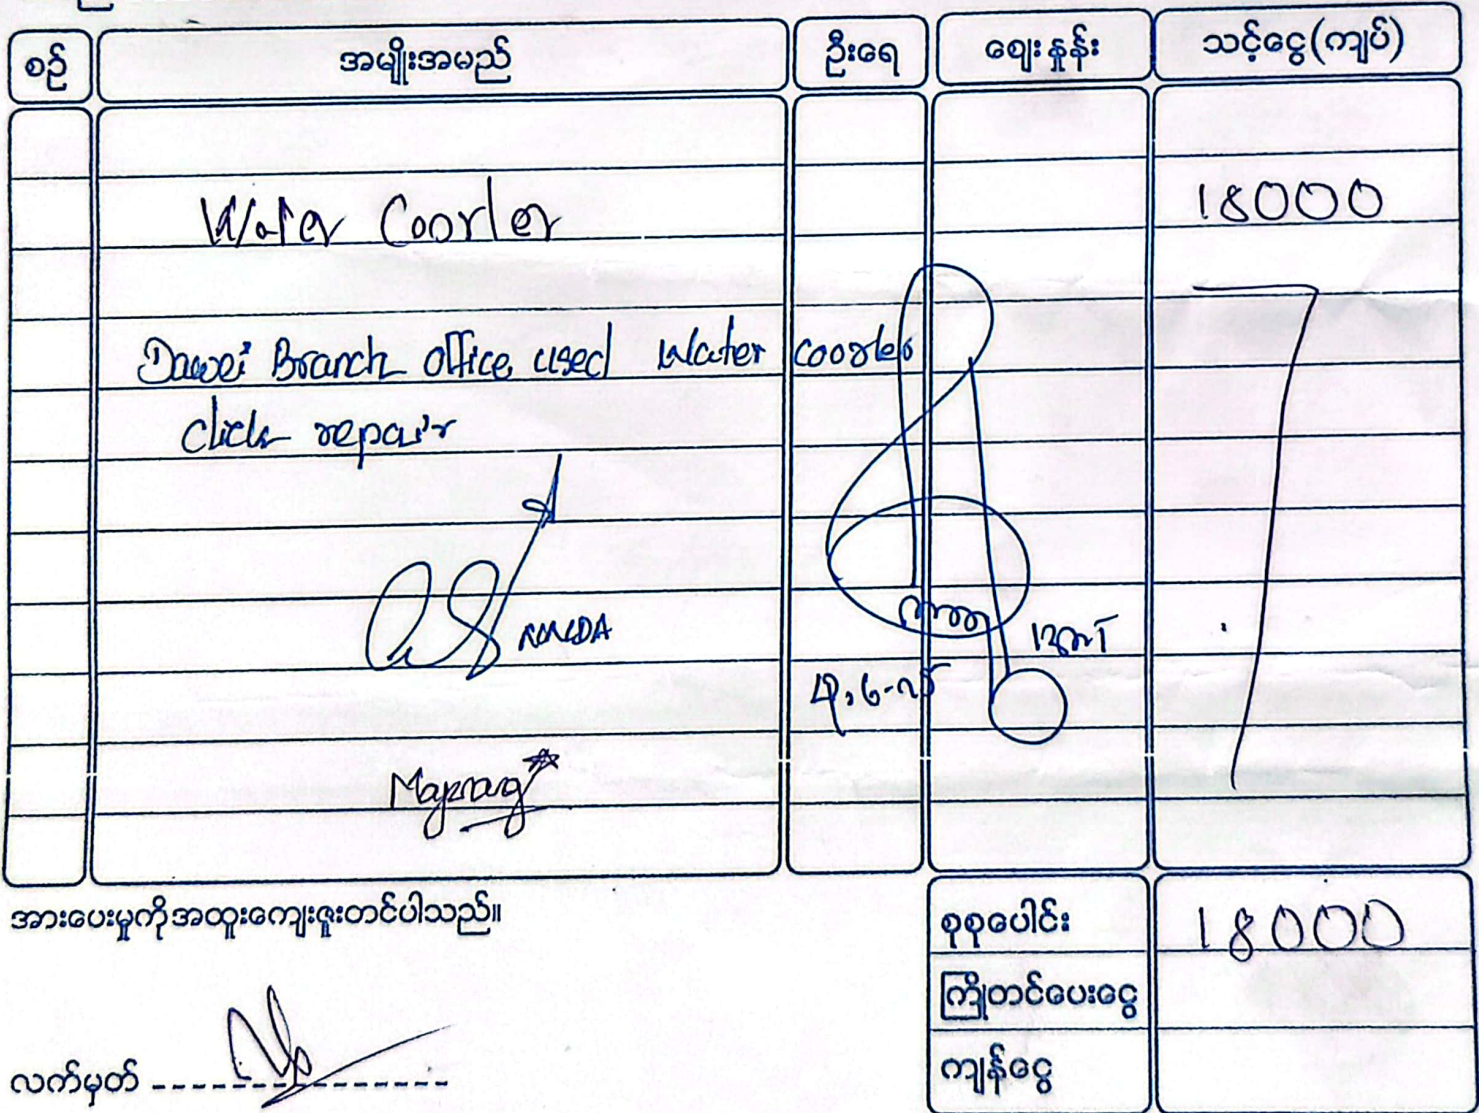 စဉ် အမျိုးအမည် ဦးရေ ဈေးနှုန်း သင့်ငွေ(ကျပ်)
Water Coorler 18000
Dawei Branch office used water coorler
click repair
အားပေးမှုကိုအထူးကျေးဇူးတင်ပါသည်။
စုစုပေါင်း 18000
ကြိုတင်ပေးငွေ
ကျန်ငွေ
လက်မှတ်